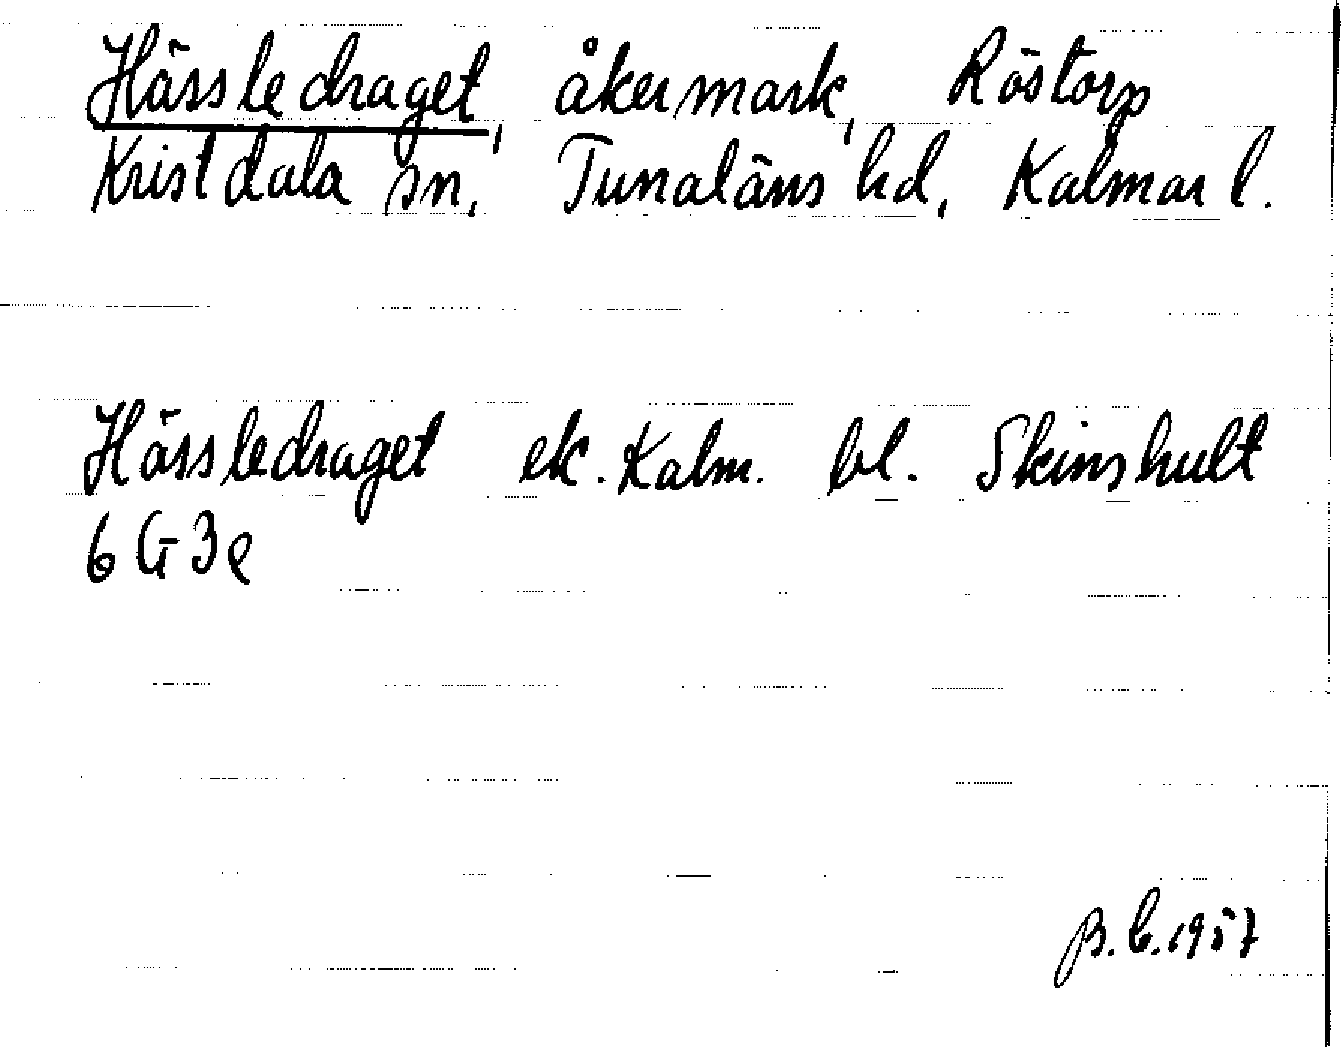 Hässledraget, åkermark, Röstorp
Kristdala sn, Tunaläns hd, Kalmar l.
Hässledraget ek. Kalm. bl. Skinshult
6 G 3 e
B. C. 1957